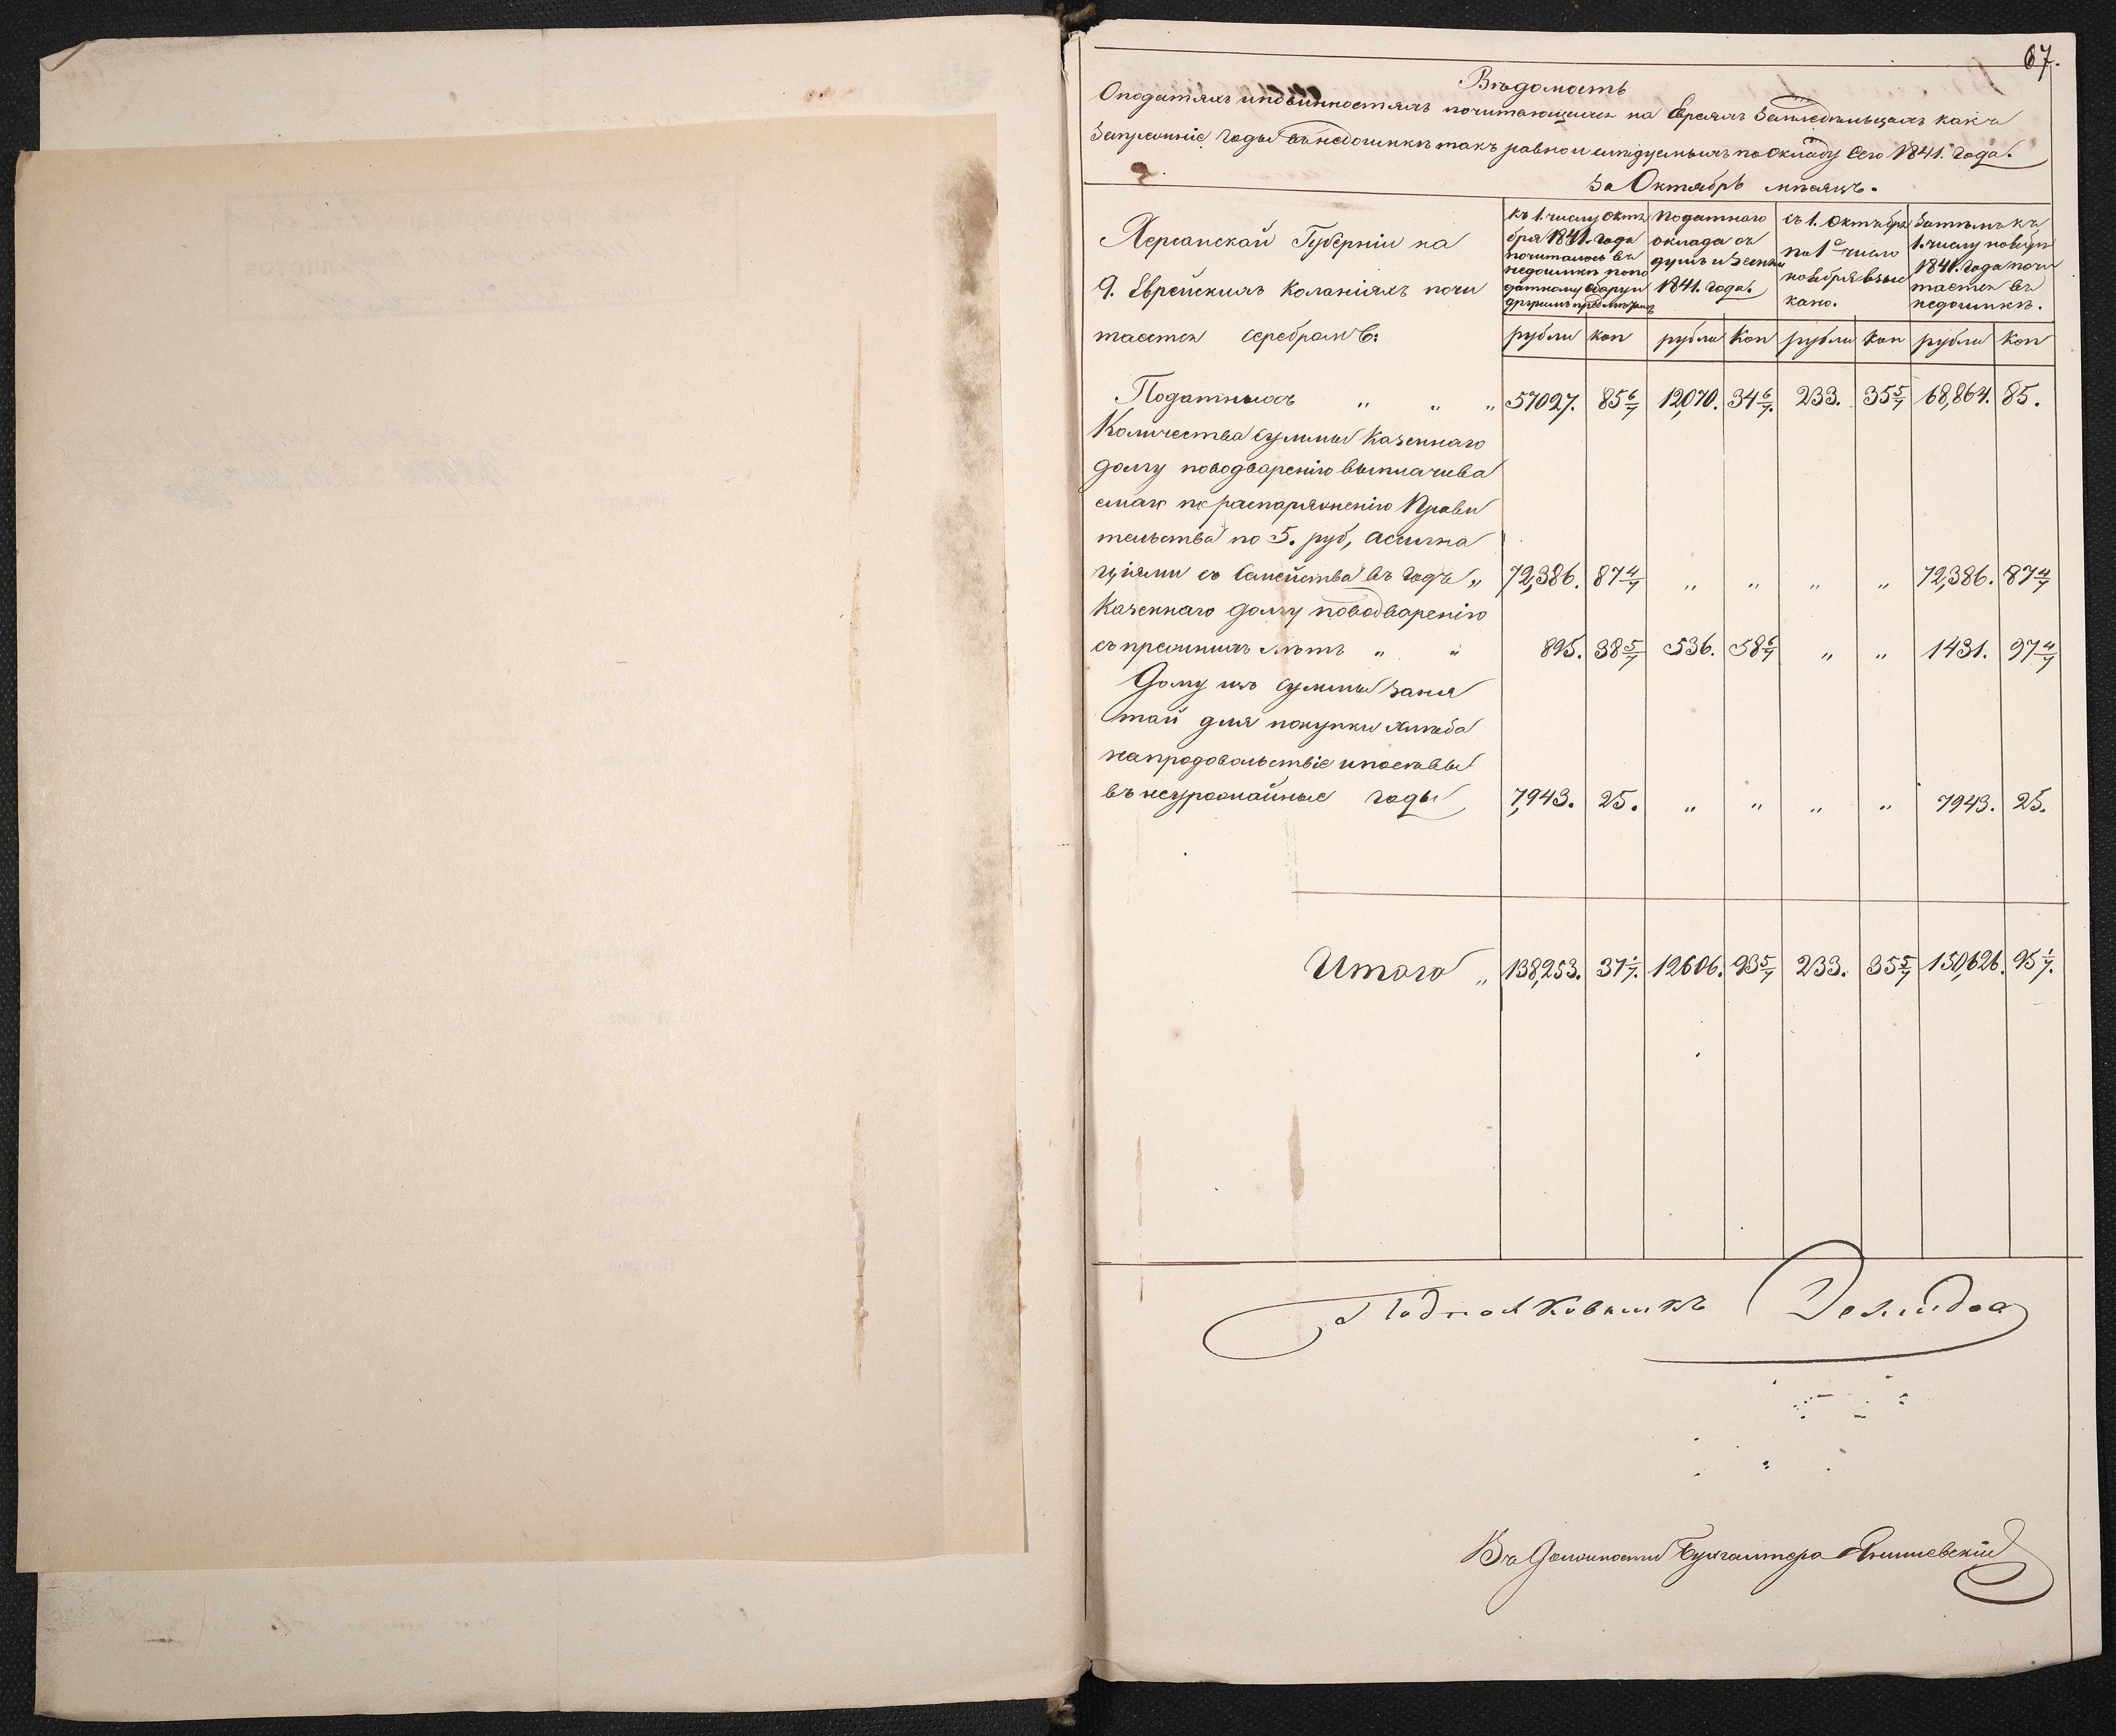 67.
Вѣдомость
О податяхъ и повинностяхъ почитающихся на Евреяхъ Земледѣльцахъ какъ за
прежніе годы въ недоимкѣ такъ равно и слѣдуемыхъ по окладу сего 1841. года.
За Октябрь мѣсяцъ.
Херсонской Губерніи на
9. Еврейскихъ Колоніяхъ почи
тается серебромъ:
къ 1. числу Октя
бря 1841. года
почиталось въ
недоимкѣ по по
датному сбору и
другимъ предметамъ
Податнаго
оклада съ
душъ и земли
1841. года.
съ 1. Октября
по 1е число
ноября взыс
кано.
Затѣмъ къ
1. числу ноября
1841. года почи
тается въ
недоимкѣ.
рубли коп рубли Коп рубли коп рубли коп
Податныхъ „ „ „ 57027. 85 6/7 12,070. 34 6/7. 233. 35 5/7 68,864. 85.
Количества суммы Казеннаго
долгу по водваренію выплачива
емаго по распоряженію Прави
тельства по 5. руб, ассигна
ціями съ Семейства въ годъ „ 72,386. 87 4/7 „ „ „ „ 72,386. 87 4/7
Казеннаго долгу по водваренію
съ прежнихъ лѣтъ „ „ 895. 38 5/7 536. 58 6/7 „ „ 1431. 97 4/7
Долгу изъ суммы заня
той для покупки хлѣба
на продовольствіе и посѣвы
въ неурожайные годы 7,943. 25. „ „ „ „ 7943. 25.
Итого „ 138,253. 37 1/7. 12606. 93 5/7 233. 35 5/7 150,626. 95 1/7.
Подполковникъ Демидов
Въ Должности Бухгалтера